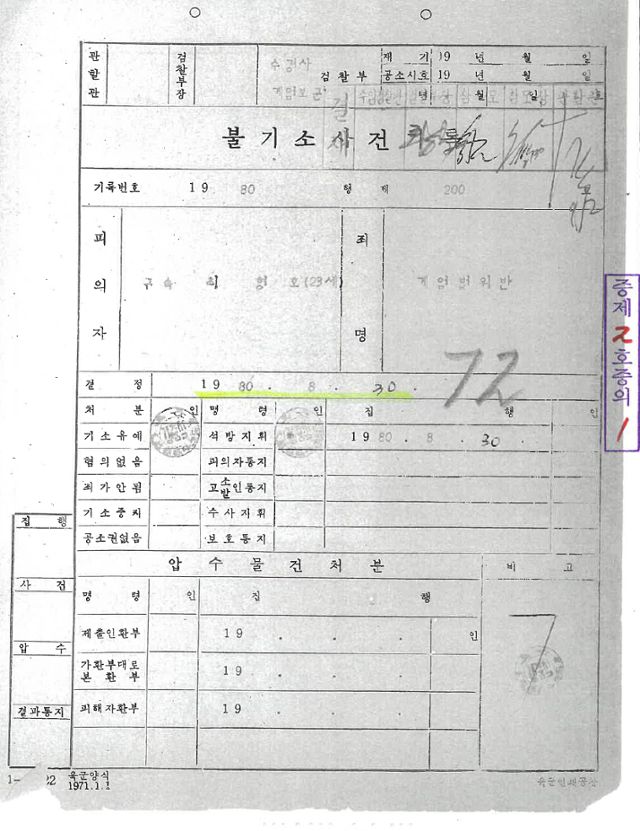 관할관 검찰부장 수경사 검찰부 재기 19 년 월 일
계엄보군 공소시효 19 년 월 일
년 월 일
불기소사건
기록번호 19 80 형 제 200
피의자 구속 최 형 호 (23세) 죄명 계엄법위반
72
결정 19 80 . 8 . 30 .
처분 인 명령 인 집 행 인
기소유예 석방지휘 19 80 . 8 . 30 .
혐의없음 피의자통지
죄가안됨 고소발인통지
기소중지 수사지휘
공소권없음 보호통지
압수물건처분 비고
명령 인 집 행
제출인환부 19 . . . 인
가환부대로본환부 19 . . .
피해자환부 19 . . .
집행
사건
압수
결과통지
1- 22 육군양식
1971.1.1
육군인쇄공창
증제 2 호증의 1